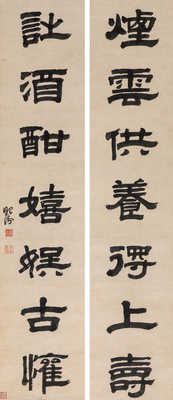 煙雲供養得上壽
詩酒酣嬉娛古懽